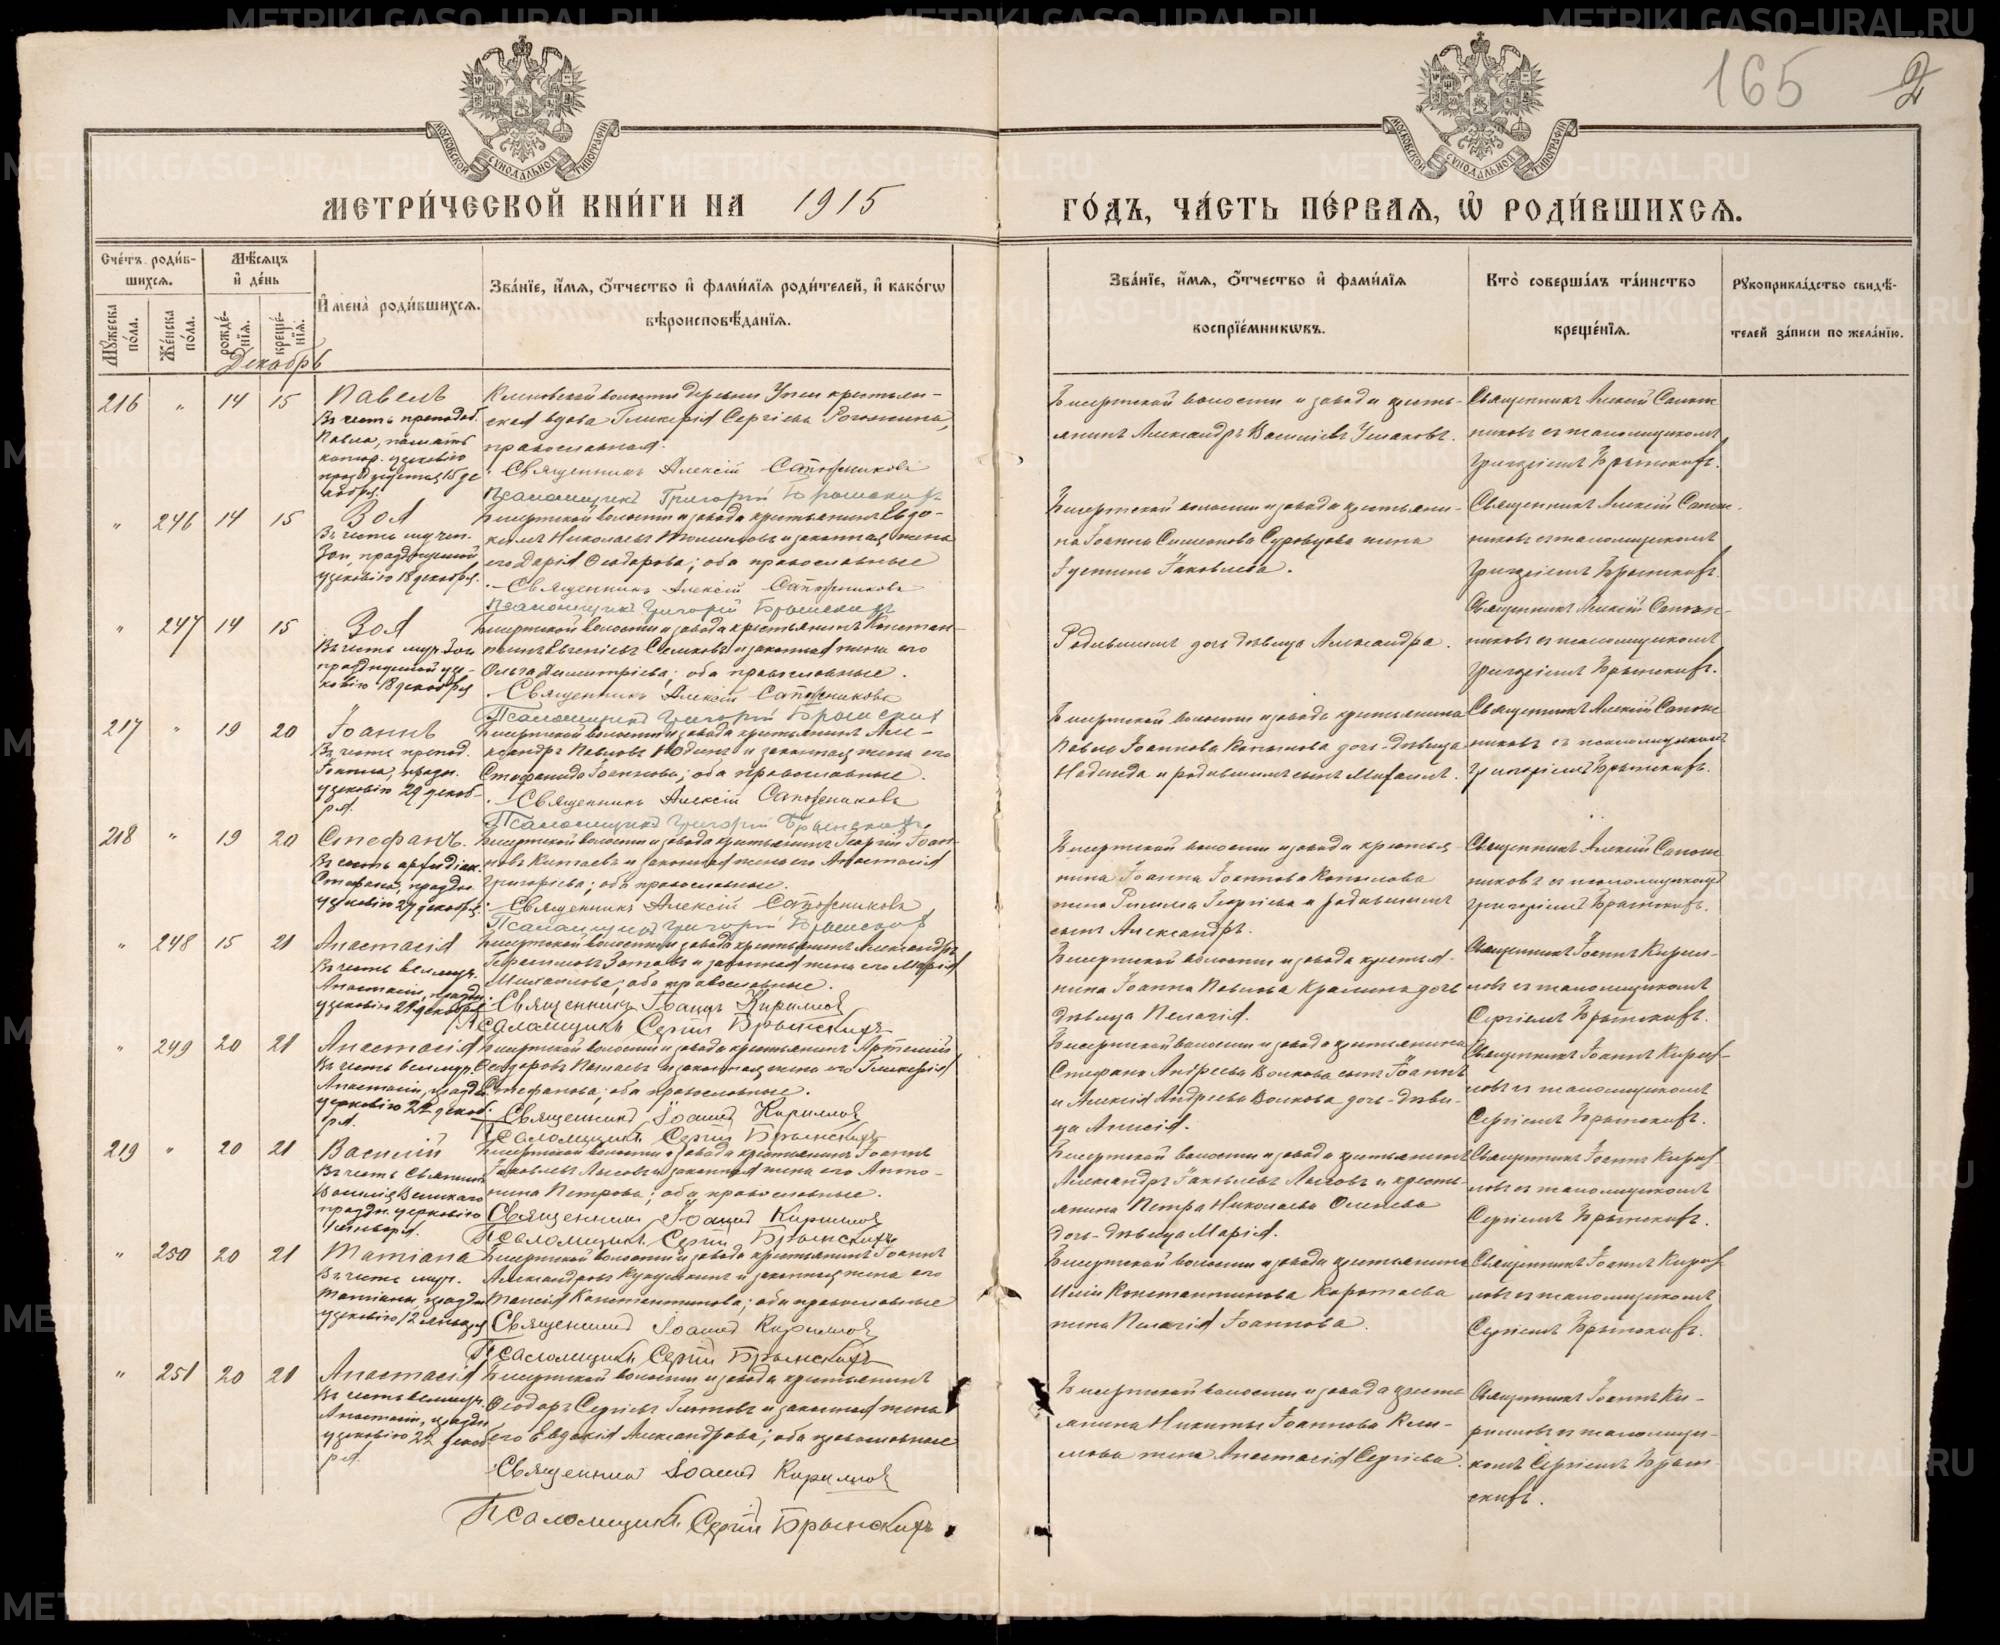 165 2
МОСКОВСКОЙ СУНОДАЛЬНОЙ ТИПОГРАФІИ
МОСКОВСКОЙ СУНОДАЛЬНОЙ ТИПОГРАФІИ
МЕТРИ́ЧЕСКОЙ КНИ́ГИ НА 1915
ГО́ДЪ, ЧА́СТЬ ПЕ́РВАЯ, Ѽ РОДИ́ВШИХСЯ.
Сче́тъ роди́в-
шихся.
Мѣ́сяцъ
и҆ де́нь
Му́жеска по́ла.
Же́нска по́ла.
рожде́-
нїя.
креще́-
нїя.
И҆мена̀ роди́вшихся.
Зва́нїе, и҆́мя, ѻ҆́тчество и҆ фами́лїя роди́телей, и҆ како́гѡ
вѣроисповѣ́данїя.
Зва́нїе, и҆́мя, ѻ҆́тчество и҆ фами́лїя
воспрїе́мникѡвъ.
Кто̀ соверша́лъ та́инство
креще́нїя.
Рукоприкла́дство свидѣ́-
телей за́писи по жела́нїю.
Декабрь
216 " 14 15 Павелъ
Въ честь преподоб.
Павла,
церковію
15 де
кабря.
волости деревни крестьян-
ская вдова Гликерія Сергіева
православная.
Священникъ Алексій Сапожниковъ
Псаломщикъ Григорій Брынскихъ
Бисертской волости и завода кресть-
янинъ Александръ Васильевъ Ушаковъ.
Священникъ Алексій Сапож
никовъ съ псаломщикомъ
Григоріемъ Брынскихъ.
" 246 14 15 Зоя
Въ честь мучен.
Зои, празднуемой
церковію 18 декабря.
Бисертской волости и завода крестьянинъ Евдо-
кимъ Николаевъ и законная жена
его Дарія Ѳеодорова; оба православные
Священникъ Алексій Сапожниковъ
Псаломщикъ Григорій Брынскихъ
Бисертской волости и завода крестьяни-
на Іоанна Симеонова Суровцова жена
Іустина Іаковлева.
Священникъ Алексій Сапож-
никовъ съ псаломщикомъ
Григоріемъ Брынскихъ
" 247 14 15 Зоя
Въ честь муч. Зои
празднуемой цер-
ковію 18 декабря
Бисертской волости и завода крестьянинъ Констан-
тинъ Евгеніевъ и законная жена его
Ольга Димитріева; оба православные.
Священникъ Алексій Сапожниковъ
Псаломщикъ Григорій Брынскихъ
Родившихъ дочь дѣвица Александра.
Священникъ Алексій Сапож-
никовъ съ псаломщикомъ
Григоріемъ Брынскихъ.
217 " 19 20 Іоаннъ
Въ честь препод.
Іоанна, праздн.
церковію 29 декаб-
ря.
Бисертской волости и завода крестьянинъ Але-
ксандръ Павловъ Юдинъ и законная жена его
Стефанида Іоаннова; оба православные.
Священникъ Алексій Сапожниковъ
Псаломщикъ Григорій Брынскихъ
Бисертской волости и завода крестьянина
Павла Іоаннова Копылова дочь-дѣвица
Надежда и родившихъ сынъ Михаилъ.
Священникъ Алексій Сапож
никовъ съ псаломщикомъ
Григоріемъ Брынскихъ.
218 " 19 20 Стефанъ.
Въ честь архидіак.
Стефана, праздн.
церковію 27 декабря.
Бисертской волости и завода крестьянинъ Георгій Іоан-
новъ Китаевъ и законная жена его Анастасія
Григоріева; оба православные.
Священникъ Алексій Сапожниковъ
Псаломщикъ Григорій Брынскихъ
Бисертской волости и завода крестья-
нина Іоанна Іоаннова Копылова
жена Георгіева и родившихъ
сынъ Александръ.
Священникъ Алексій Сапож
никовъ съ псаломщикомъ
Григоріемъ Брынскихъ.
" 248 15 21 Анастасія
Въ честь великомуч.
Анастасіи, праздн.
церковію 22 декабря
Бисертской волости и завода крестьянинъ Александръ
Герасимовъ и законная жена его Марія
оба православные.
Священникъ Іоаннъ Кириловъ
Псаломщикъ Сергій Брынскихъ
Бисертской волости и завода крестья-
нина Іоанна Павлова дочь
дѣвица Пелагія.
Священникъ Іоаннъ Кирил-
ловъ съ псаломщикомъ
Сергіемъ Брынскихъ.
" 249 20 21 Анастасія
Въ честь великомуч.
Анастасіи, праздн.
церковію 22 декаб.
ря.
Бисертской волости и завода крестьянинъ Артемій
Ѳеодоровъ и законная жена его Гликерія
Стефанова; оба православные.
Священникъ Іоаннъ Кириловъ
Псаломщикъ Сергій Брынскихъ
Бисертской волости и завода крестьянина
Стефана Андреева Волкова сынъ Іоаннъ
и Алексія Андреева Волкова дочь-дѣви-
ца Анисія.
Священникъ Іоаннъ Кирил-
ловъ съ псаломщикомъ
Сергіемъ Брынскихъ.
219 " 20 21 Василій
Въ честь Святит.
Василія Великаго
праздн. церковію
1 января.
Бисертской волости и завода крестьянинъ Іоаннъ
Іаковлевъ и законная жена его Анто-
нина Петрова; оба православные.
Священникъ Іоаннъ Кириловъ
Псаломщикъ Сергій Брынскихъ
Бисертской волости и завода крестьянинъ
Александръ Іаковлевъ и кресть-
янина Петра Николаева
дочь-дѣвица Марія.
Священникъ Іоаннъ Кирил-
ловъ съ псаломщикомъ
Сергіемъ Брынскихъ.
" 250 20 21 Татіана
Въ честь муч.
Татіаны, праздн.
церковію 12 января
Бисертской волости и завода крестьянинъ Іоаннъ
Александровъ и законная жена его
Таисія Константинова; оба православные
Священникъ Іоаннъ Кириловъ
Псаломщикъ Сергій Брынскихъ
Бисертской волости и завода крестьянина
Иліи Константинова Коротаева
жена Пелагія Іоаннова.
Священникъ Іоаннъ Кирил-
ловъ съ псаломщикомъ
Сергіемъ Брынскихъ.
" 251 20 21 Анастасія
Въ честь великомуч.
Анастасіи, праздн.
церковію 22 декаб
ря.
Бисертской волости и завода крестьянинъ
Ѳеодоръ Сергіевъ и законная жена
его Евдокія Александрова; оба православные
Священникъ Іоаннъ Кириловъ
Псаломщикъ Сергій Брынскихъ
Бисертской волости и завода кресть
янина Никиты Іоаннова Кли-
мова жена Анастасія Сергіева.
Священникъ Іоаннъ Ки-
рилловъ съ псаломщи-
комъ Сергіемъ Брын-
скихъ.
METRIKI.GASO-URAL.RU